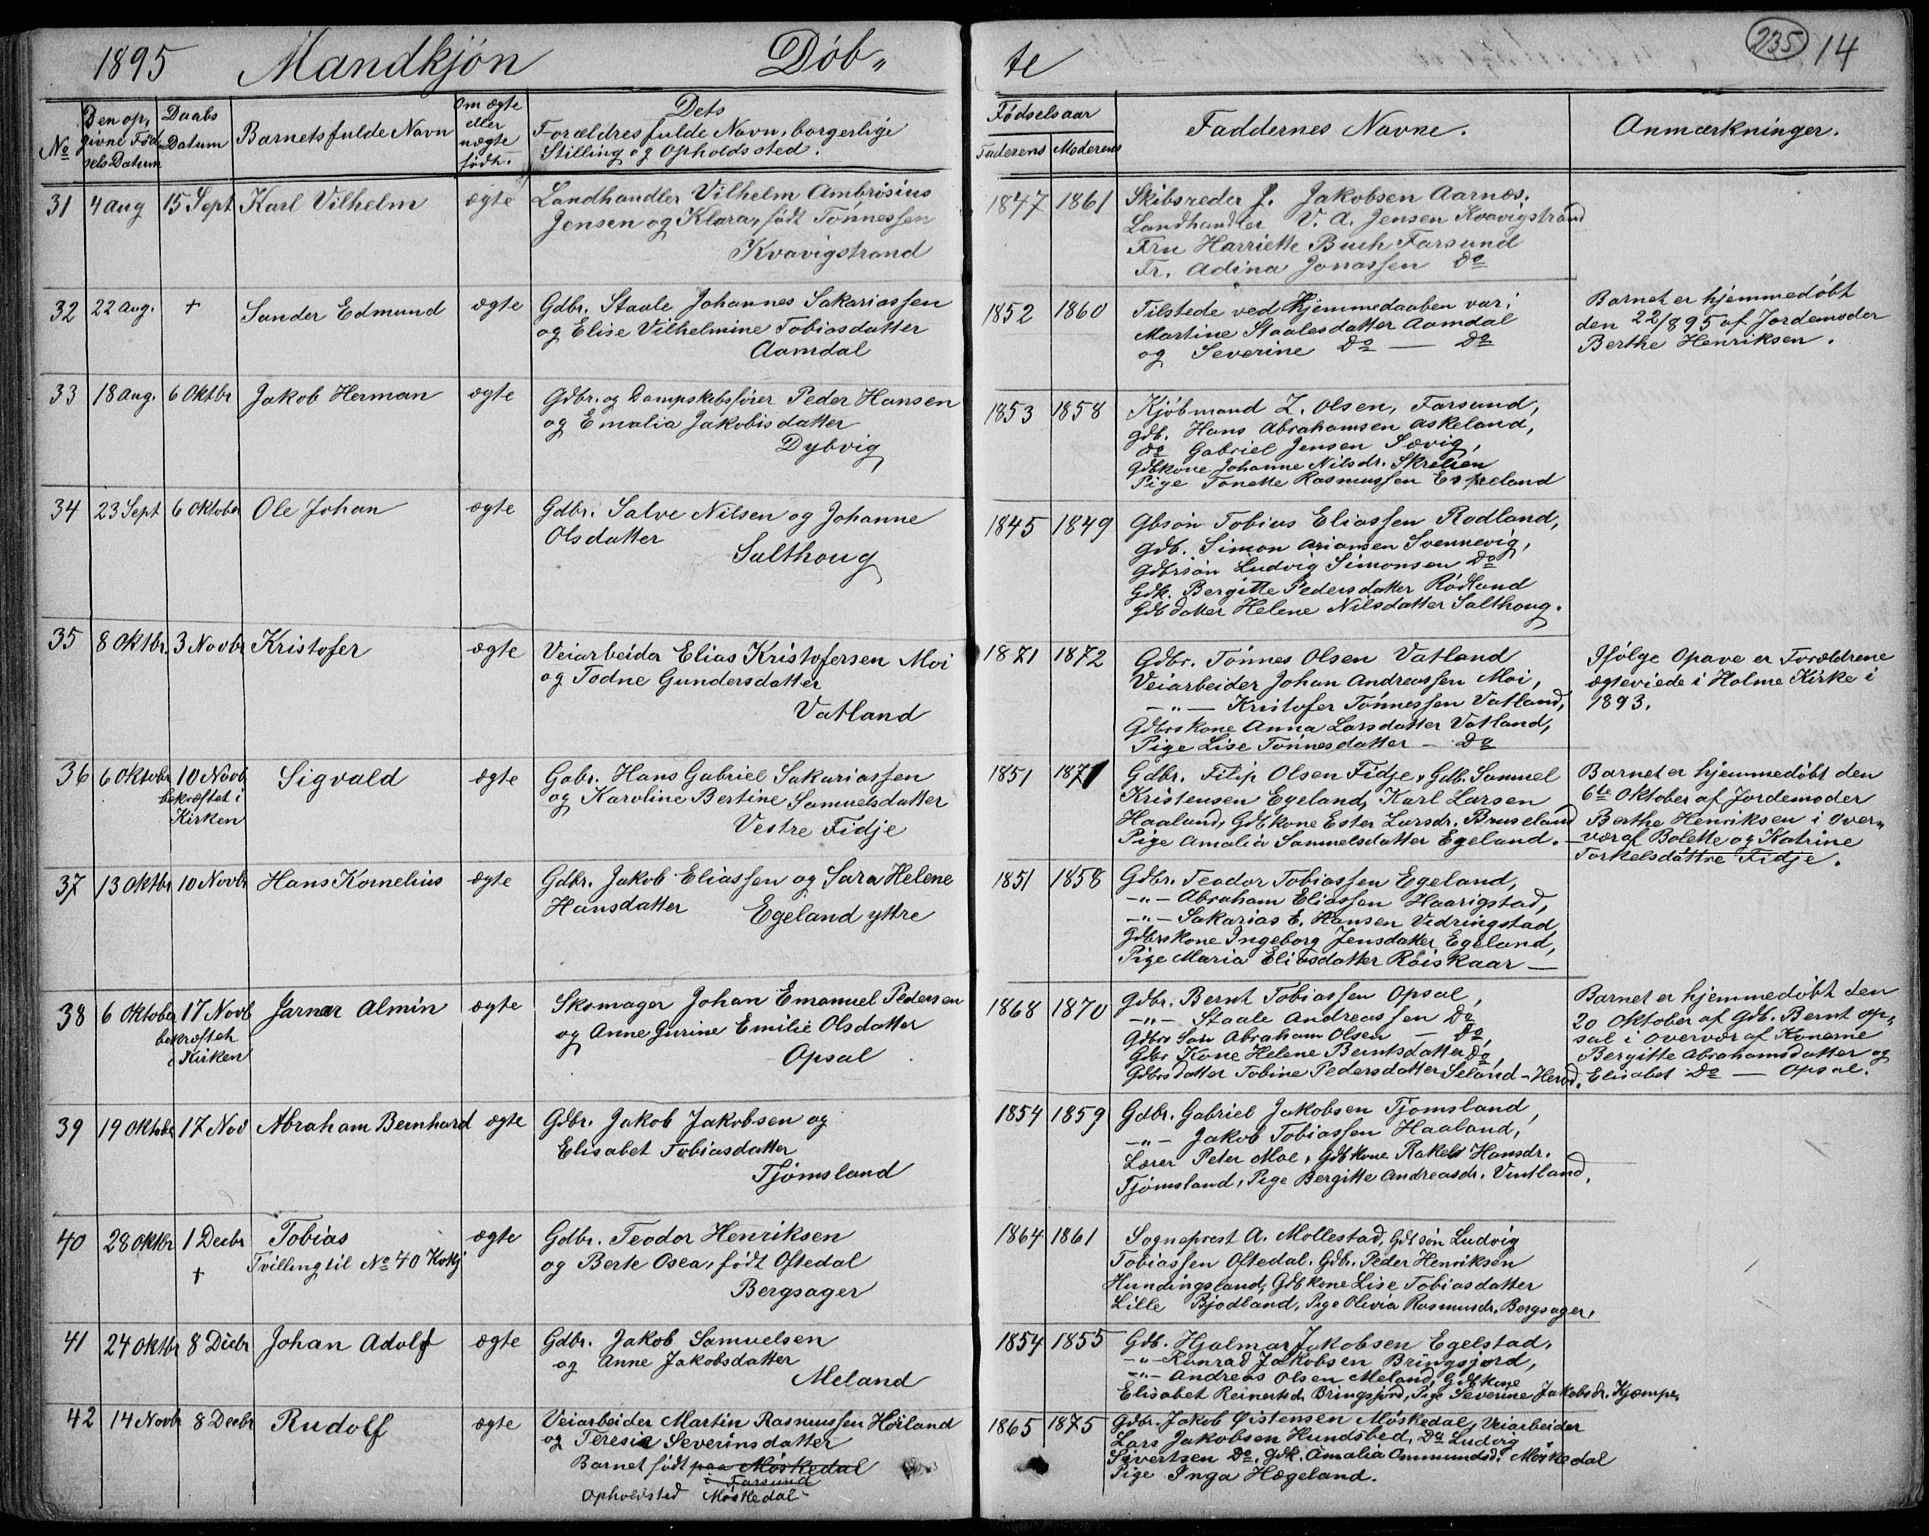 1895 Mandkjön Döb„
te 235 14
No
Den op, givne Fød selsDatum
Daabs Datum
Barnets fulde Navn
Om ægte eller uægte født.
Dets Forældres fulde Navn, borgerlige Stilling og Opholdssted.
Fødselsaar
Faderens Moderens
Faddernes Navne.
Anmærkninger.
31 4 Aug 15 Sept Karl Vilhelm ægte Landhandler Vilhelm Ambrosius
Jensen og Klara, født Tönnessen
Kvavigstrand
1847 1861 Skibsreder J. Jakobsen Aarnes.
Landhandler V. A. Jensen Kvavigstrand
Fru Harriette Buch Farsund
Fr. Adina Jonassen Do
32 22 Aug. + Sander Edmund ægte Gdbr. Staale Johannes Sakariassen
og Elise Vilhelmine Tobiasdatter
Aamdal
1852 1860 Tilstede ved Hjemmedaaben var:
Martine Staalesdatter Aamdal
og Severine Do — Do
Barnet er hjemmedöbt
den 22/8 95 af Jordemoder
Berthe Henriksen.
33 18 Aug. 6 Oktbr Jakob Herman ægte Gdbr. og Dampskibsfører Peder Hansen
og Emalia Jakobisdatter
Dybvig
1853 1858 Kjöbmand Z. Olsen, Farsund,
gdb. Hans Abrahamsen Askeland,
do Gabriel Jensen Sævig,
Gdbkone Johanne Nilsdr. Skrelien
Pige Tonette Rasmussen Espeland
34 23 Sept 6 Oktober Ole Johan ægte Gdbr. Salve Nilsen og Johanne
Olsdatter
Salthoug
1845 1849 Gbsön Tobias Eliassen Rodland,
Gdb. Simon Ariansen Svennevig,
Gdbrsön Ludvig Simonsen Do
Gdk. Bergitte Pedersdatter Rödland
Gdbdatter Helene Nilsdatter Salthoug.
35 8 Oktbr. 3 Novbr Kristofer ægte Veiarbeider Elias Kristofersen Moi
og Todne Gundersdatter
Vatland
1871 1872 Gdbr. Tönnes Olsen Vatland
Veiarbeider Johan Andreassen Moi,
— „ — Kristofer Tönnessen Vatland,
Gdbrskone Anna Larsdatter Vatland,
Pige Lise Tönnesdatter — Do
Ifölge Opave er Forældrene
ægteviede i Holme Kirke i
1893.
36 6 Oktober 10 Novb Sigvald ægte Gabr. Hans Gabriel Sakariassen
bekræftet i
Kirken
og Karoline Bertine Samuelsdatter
Vestre Fidje
1851 1871 Gdbr. Filip Olsen Fidje, Gdb. Samuel
Kristensen Egeland, Karl Larsen
Haaland, Gdbkone Ester Larsdr. Bruseland
Pige Amalia Samuelsdatter Egeland.
Barnet er hjemmedöbt den
6te Oktober af Jordemoder
Berthe Henriksen i Over„
vær af Bolette og Katrine
Torkelsdöttre Fidje.
37 13 Oktbr 10 Novbr Hans Kornelius ægte Gdbr. Jakob Eliassen og Sara Helene
Hansdatter
Egeland yttre
1851 1858 Gdbr. Teodor Tobiassen Egeland,
— „ — Abraham Eliassen Haarigstad,
— „ — Sakarias E. Hansen Vidringstad
Gdbrskone Ingeborg Jensdatter Egeland,
Pige Maria Eliasdatter Röiskaar —
38 6 Oktober 17 Novb Jarnar Almin ægte Skomager Johan Emanuel Pedersen
bekræftet
i Kirken
og Anne Gurine Emilie Olsdatter
Opsal
1868 1870 Gdbr. Bernt Tobiassen Opsal,
— „ — Staale Andreassen Do,
Gdbrs Sön Abraham Olsen — Do,
Gdbr Kone Helene Berntsdatter Do,
Gdbrsdatter Tobine Pedersdatter Seland - Herad.
Barnet er hjemmedöbt den
20 Oktober af Gdb. Bernt Op„
sal i Overvær af Konerne
Bergitte Abrahamsdatter og
Elisabet Do — Opsal.
39 19 Oktober 17 Nov Abraham Bernhard ægte Gdbr. Jakob Jakobsen og
Elisabet Tobiasdatter
Tjömsland
1854 1859 Gdbr. Gabriel Jakobsen Tjomsland,
— „ — Jakob Tobiassen Haaland,
Lærer Peter Moe, Gdbkone Rakel Hansdr.
Tjömsland, Pige Bergitte Andreasdr. Vintland.
40 28 Oktbr 1 Decbr Tobias ægte Gdbr. Teodor Henriksen
+ Tvilling til No 40 Kvkj
og Berte Osea, født Oftedal
Bergsager
1864 1861 Sogneprest A. Mollestad, Gdbsön Ludvig
Tobiassen Oftedal. Gdbr. Peder Henriksen
Hundingsland, Gdbkone Lise Tobiasdatter
Lille Bjodland, Pige Olivia Rasmusdr. Bergsager.
41 24 Oktbr 8 Decbr Johan Adolf ægte Gdbr. Jakob Samuelsen
og Anne Jakobsdatter
Meland
1854 1855 Gdb. Hjalmar Jakobsen Egelstad,
— „ — Konrad Jakobsen Bringsjord,
— „ — Andreas Olsen Meland, Gdbkone
Elisabet Reinertsd. Bringsjord, Pige Severine Jakobsdr. Kjæmpe.
42 14 Novbr 8 Decbr Rudolf ægte Veiarbeider Martin Rasmussen Höiland
og Teresia Severinsdatter
Barnet født paa Möskedal
i Farsund
Opholdsted Möskedal
1865 1875 Gdbr. Jakob Öistensen Möskedal, Veiarbeider
Lars Jakobsen Hundsbed, Do Ludvig
Sivertsen Do. Gdk. Amalia Ommundsd. Möskedal
Pige Inga Hægeland.